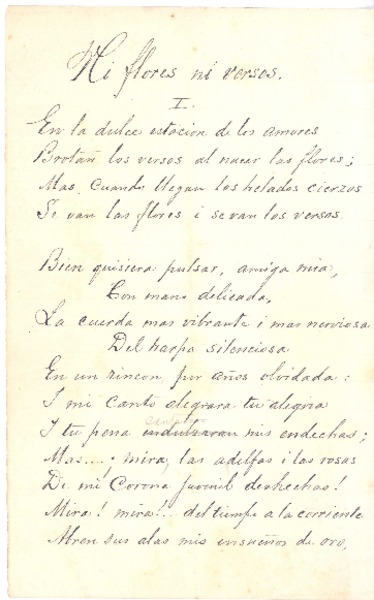 Ni flores ni versos.
I.
En la dulce estacion de los amores
Brotan los versos al nacer las flores;
Mas, Cuando llegan los helados cierzos
Se van las flores i se van los versos.
Bien quisiera pulsar, amiga mia,
Con mano delicada,
La cuerda mas vibrante i mas nerviosa
Del harpa silenciosa
En un rincon, por años olvidada:
I mi Canto alegrara tu alegria
I tu pena endulzaran mis endechas;
Mas....; mira, las adelfas i las rosas
De mi Corona juvenil deshechas!
Mira! mira!... del tiempo a la corriente
Abren sus alas mis ensueños de oro,